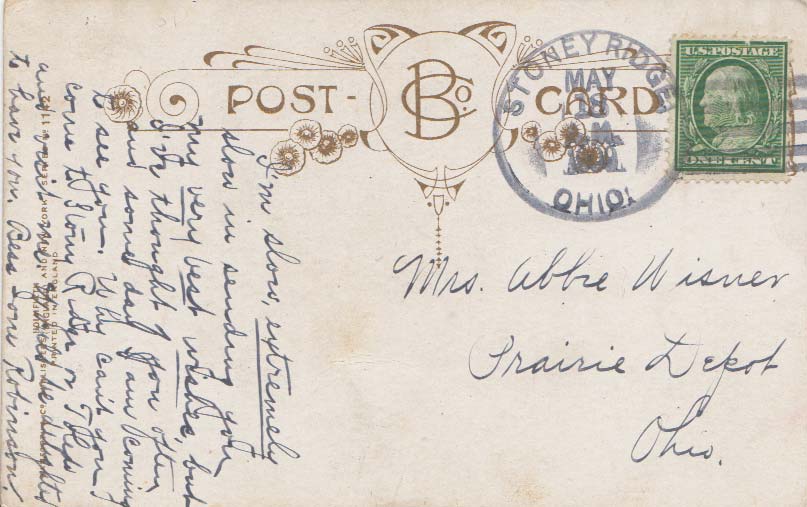 POST-
B Co.
CARD
STONEY RIDGE
MAY
OHIO
U.S. POSTAGE
ONE CENT
Mrs. Abbie Wisner
Prairie Depot
Ohio.
I'm slow, extremely
slow in sending you
my very best wishes, but
I've thought of you often
and some day I am coming
to see you. Why can't you
come to Stony Ridge or Toledo
and visit me. I'd be delighted
to have you. Bess Jones Robinson.
PRINTED IN ENGLAND